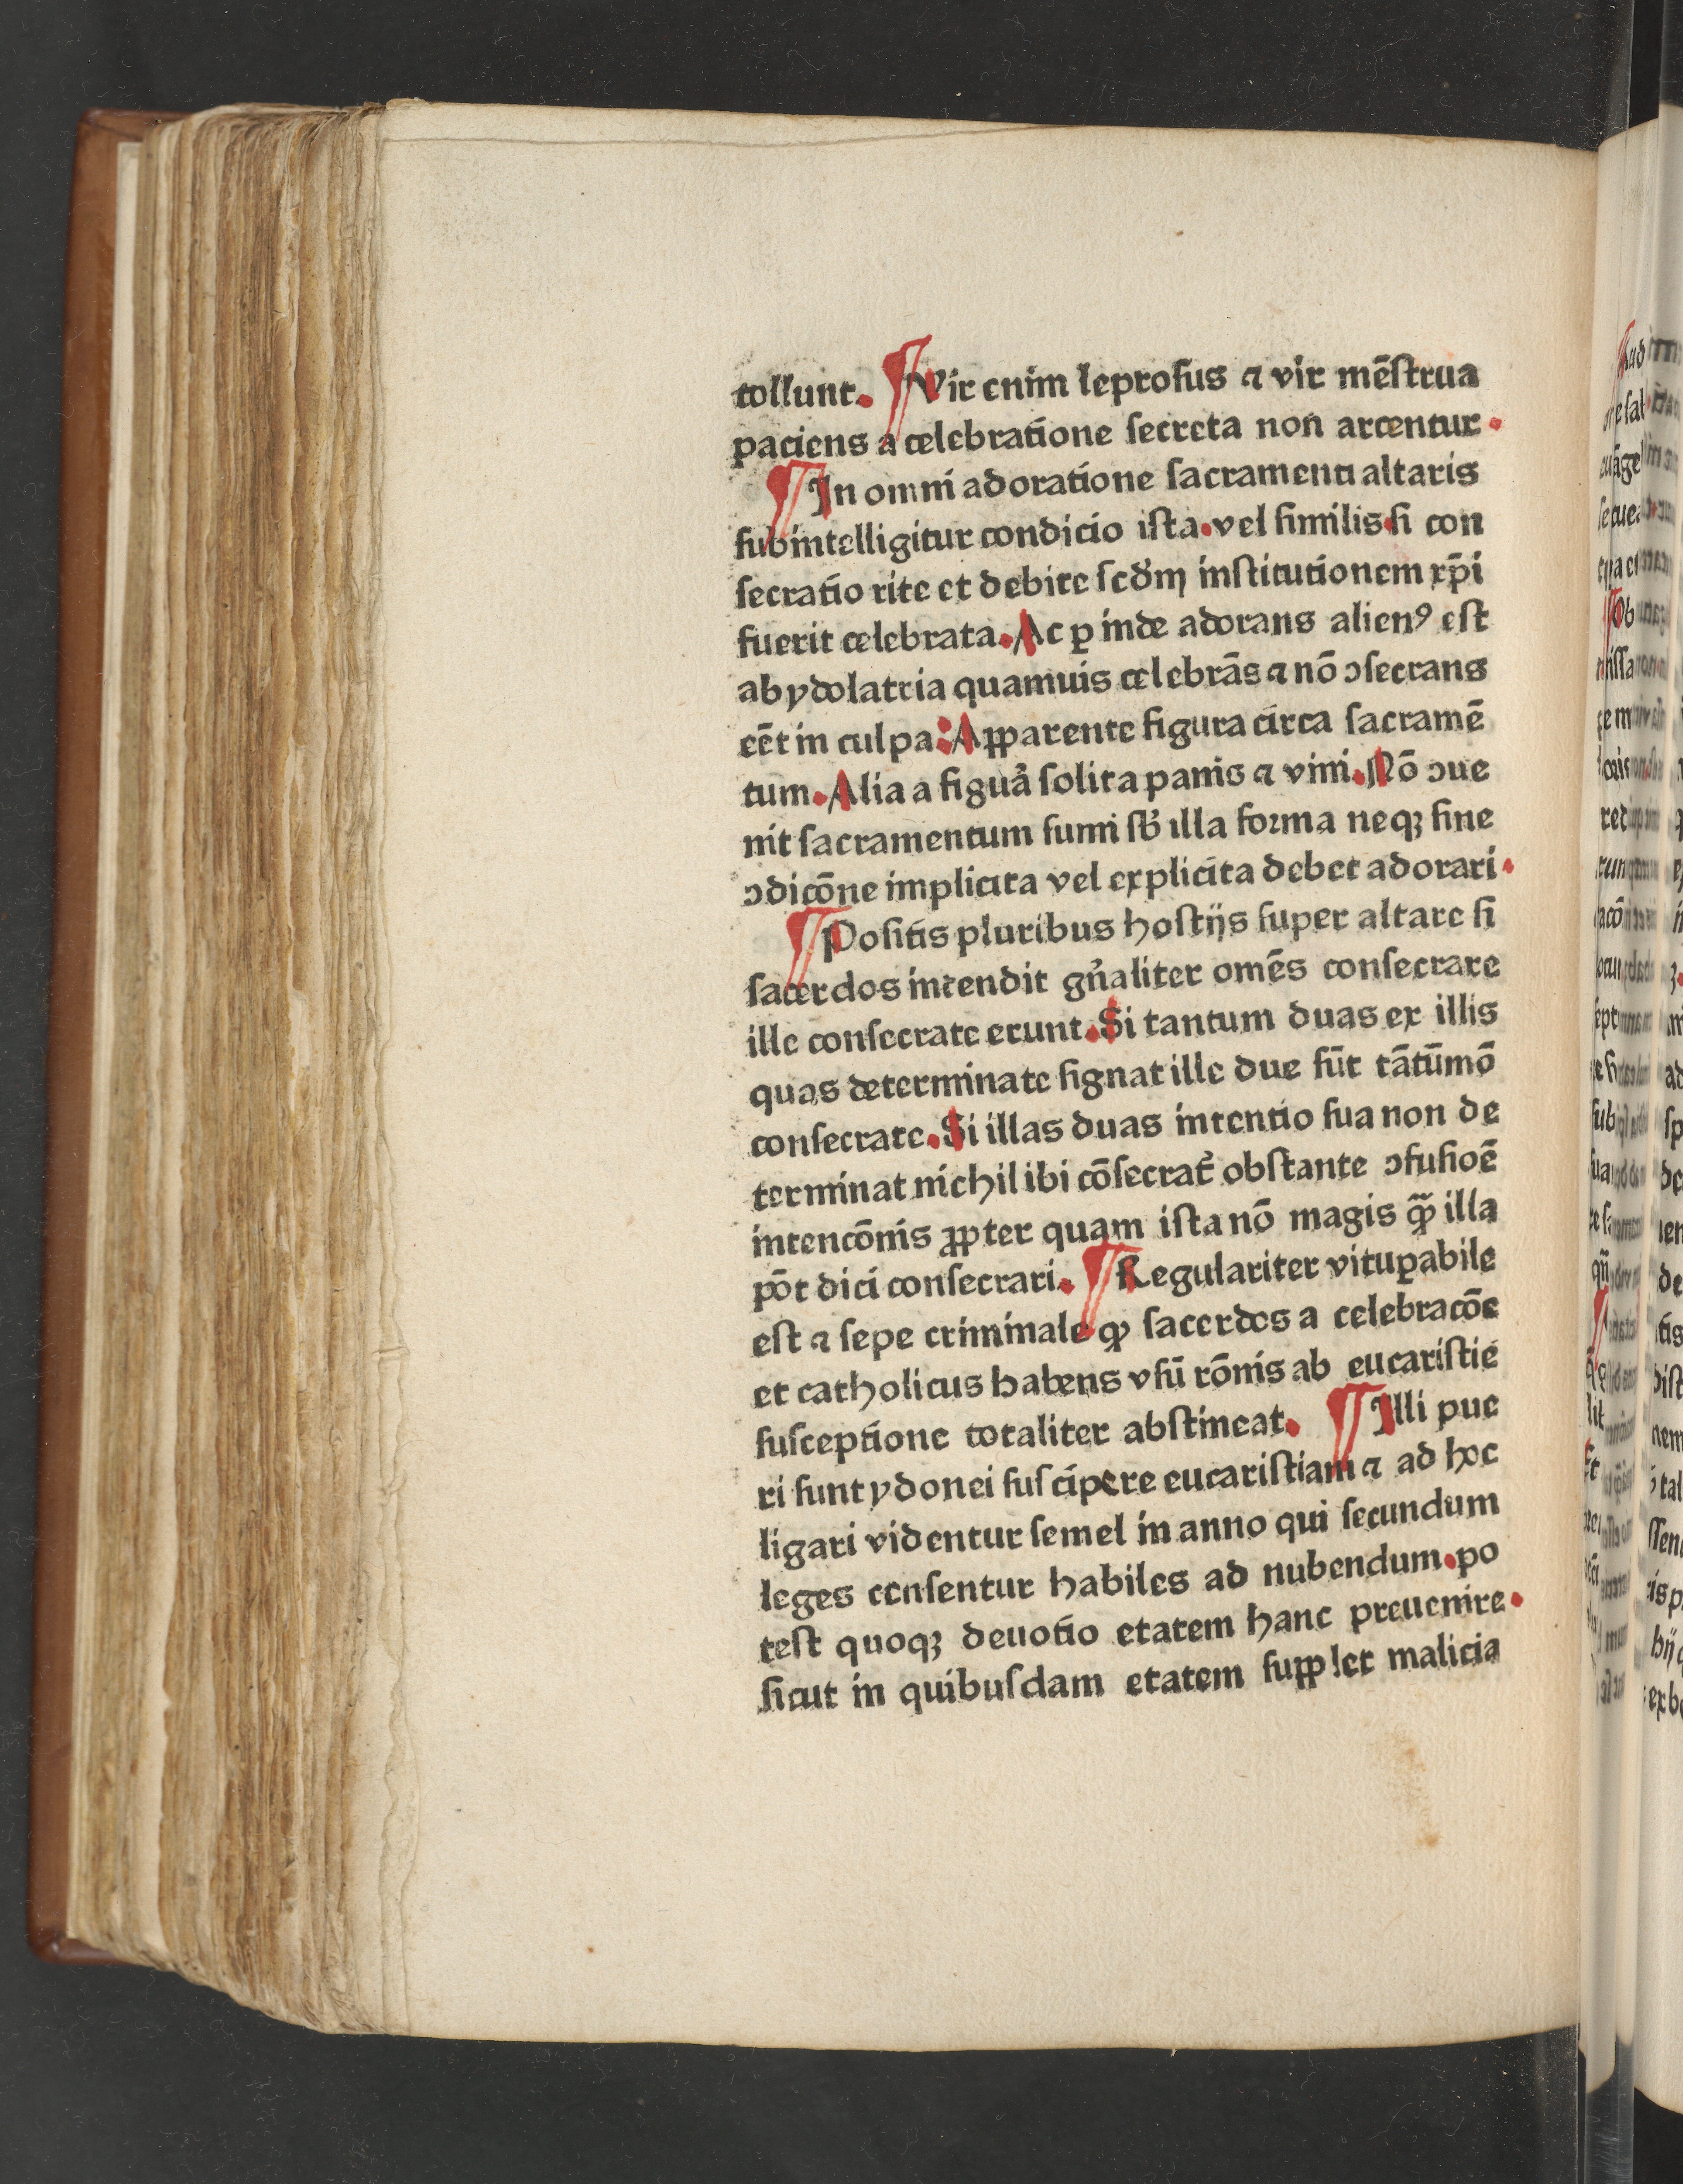 tollunt. ¶ Vir enim leproſus ⁊ vir mēſtrua
paciens a celebratione ſecreta non arcentur.
¶ In omni adoratione ſacramenti altaris
ſubintelligitur condicio iſta.vel ſimilis.ſi con
ſecratio rite et debite ſcd̓m inſtitutionem xp̄i
fuerit celebrata. Ac ꝑ inde adorans alienꝰ eſt
ab ydolatria quamuis celebrās ⁊ nō ↄſecrans
eēt in culpa: Apparente figura circa ſacramē
tum. Alia a figua̓ ſolita panis ⁊ vini. Nō ↄue
nit ſacramentum ſumi ſb̓ illa forma neqꝫ ſine
ↄdicōne implicita vel explicita debet adorari.
¶ Poſitis pluribus hoſtijs ſuper altare ſi
ſacerdos intendit gn̓aliter omēs conſecrare
ille conſecrate erunt. Si tantum duas ex illis
quas determinate ſignat ille due ſūt tātūmō
conſecrate. Si illas duas intentio ſua non de
terminat nichil ibi cōſecrat̓ obſtante ↄfuſioē
intencōnis ꝓpter quam iſta nō magis qᷓꝫ illa
pōt dici conſecrari. ¶ Regulariter vituꝑabile
eſt ⁊ ſepe criminale ꝙ ſacerdos a celebracōe
et catholicus habens vſū rōnis ab eucariſtie
ſuſceptione totaliter abſtineat. ¶ Illi pue
ri ſunt ydonei ſuſcipere eucariſtiam ⁊ ad hoc
ligari videntur ſemel in anno qui ſecundum
leges cenſentur habiles ad nubendum.po
teſt quoqꝫ deuotio etatem hanc preuenire.
ſicut in quibuſdam etatem ſupplet malicia